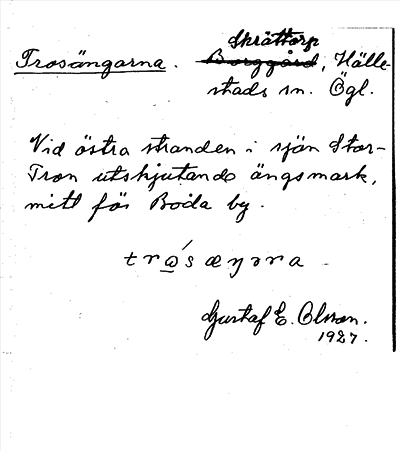 Skråttorp
Trosängarna. Borggård, Hälle-
stads sn. Ögl.
Vid östra stranden i sjön Stor-
Tron utskjutande ängsmark,
mitt för Boda by.
trώ̲sæŋəra
Gustaf E. Olsson.
1927.